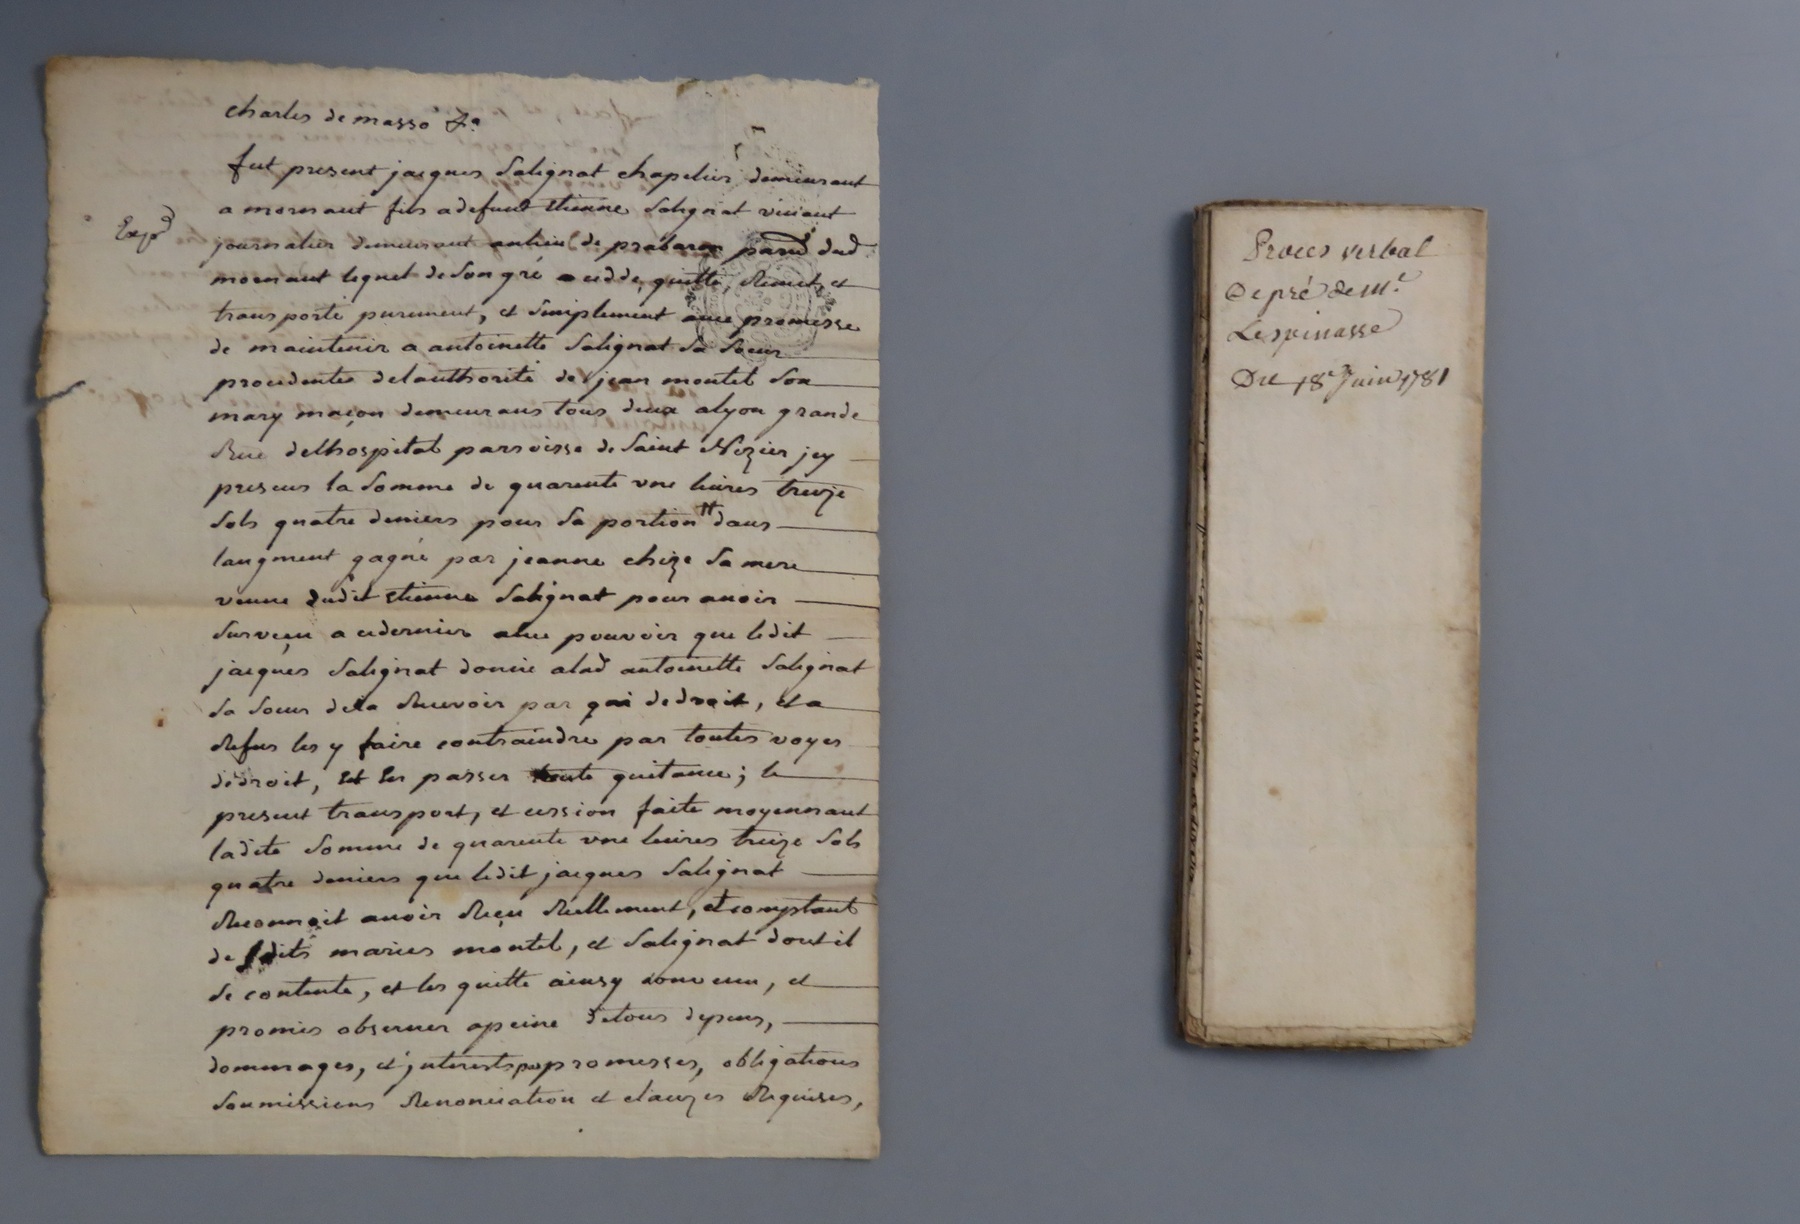 charles de masso
fut present jacques Salignat chapelier demeurant
a mornant fils a defunt Etienne Salignat vivant
journalier demeurant au lieu de prabaron parr dud
mornant lequel de son gré cedde, quitte, Remet, et
transporte purement, et simplement avec promesse
de maintenir a antoinette Salignat Sa Soeur
procedente delauthorité de jean montel Son
mary maçon demeurans tous deux alyon grande
Rue delhospital parroisse de Saint Nizier jcy
presens la Somme de quarente une livres treize
Sols quatre deniers pour Sa portion dans
laugment gagné par jeanne chize Sa mere
veuve dudit Etienne Salignat pour avoir
Survecu a cedernier avec pouvoir que ledit
jacques Salignat donne alad antoinette Salignat
Sa Soeur dela Recevoir par qui dedroit, et a
Refus les y faire contraindre par toutes voyes
dedroit, Et En passer toute quitance; le
present transport, et cession faite moyennant
ladite Somme de quarente une livres treize Sols
quatre deniers que ledit jacques Salignat
Reconnoit avoir Reçu Reellement, et comptant
de dits maries montel, et Salignat dont il
Se contente, et les quitte ainsy convenu, et
promis observer apeine detous depens,
dommages, et jnterests par promesses, obligations
Soumissions Renonciation et clauzes Requises,
Exp
Procès verbal
De pré de Mr
Lespinasse
Du 18e Juin 1781